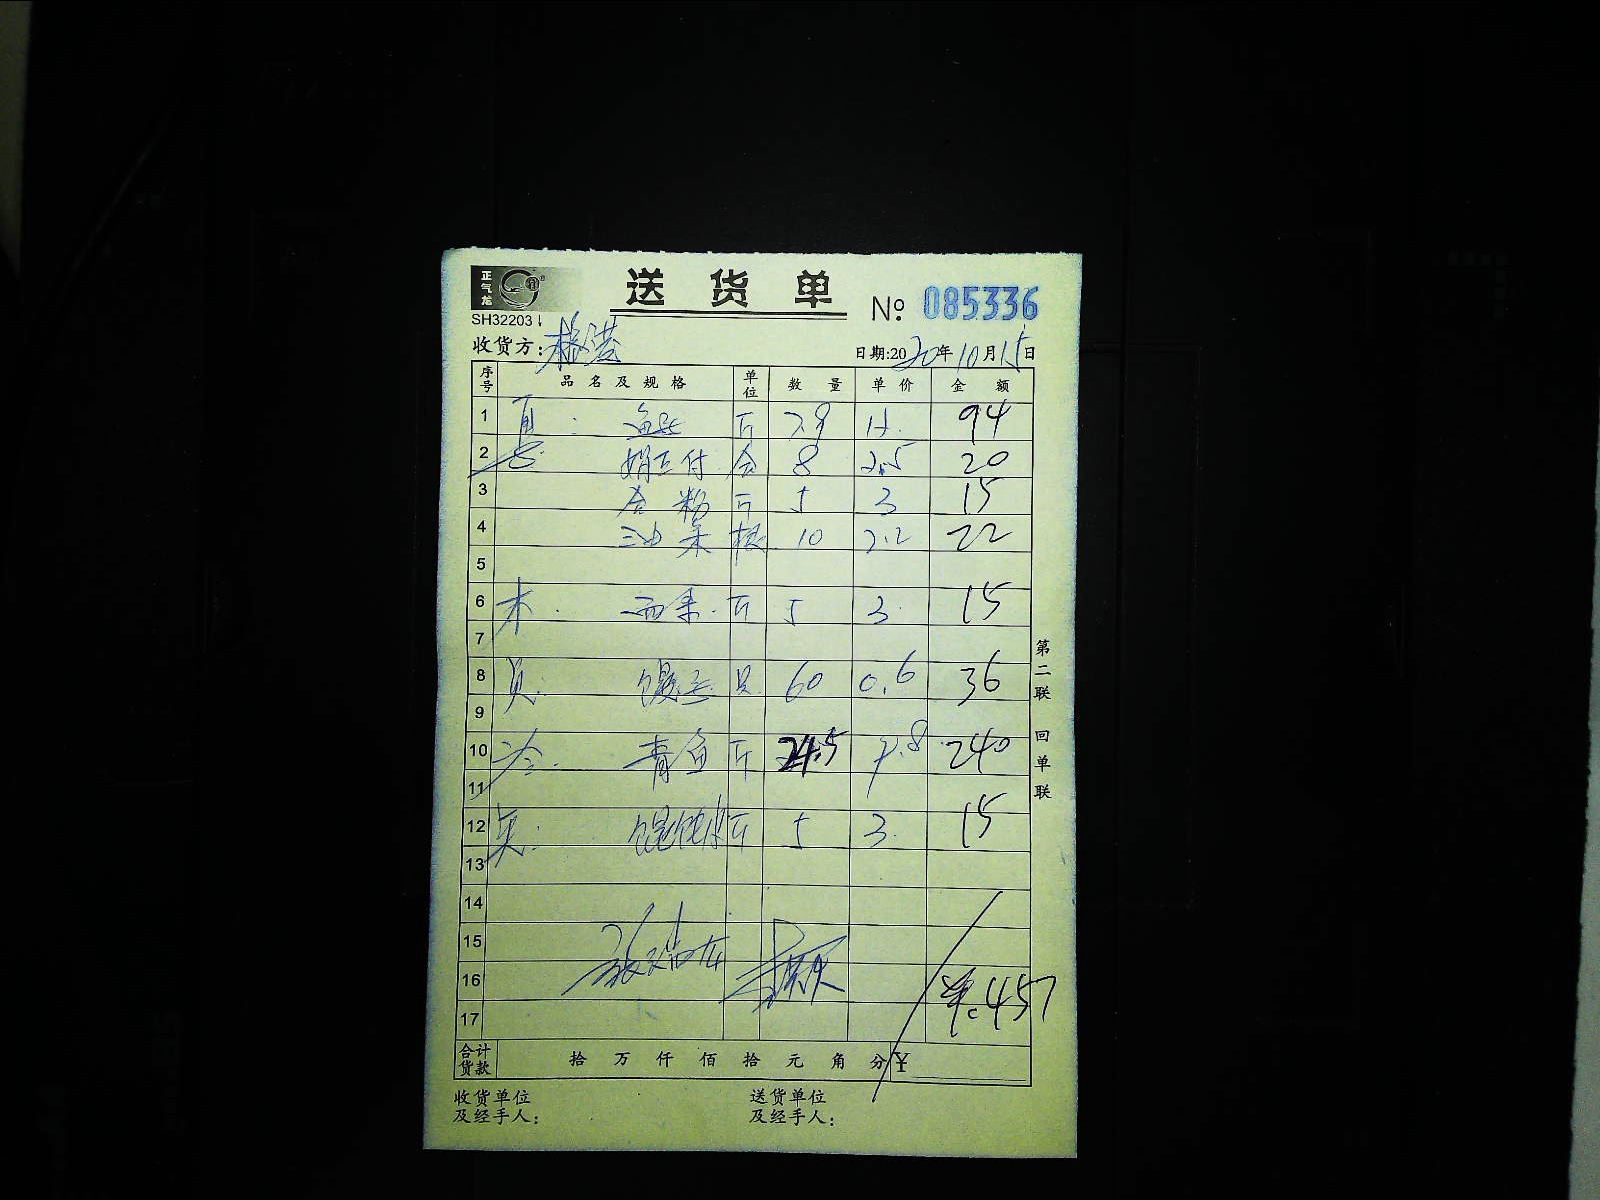 正气龙
送货单 № 085336
SH32203
收货方: 日期:2020年10月15日
序号 品名及规格 单位 数量 单价 金额
1 斤 94
2 8 2.5 20
3 粉 斤 5 3 15
4 油条 根 10 2.2 22
5
6 斤 5 3 15
7
8 只 60 0.6 36
9
10 青鱼 斤 24.5 9.8 240
11
12 馄饨皮 斤 5 3 15
13
14
15
16 ¥:457
17
合计货款 拾 万 仟 佰 拾 元 角 分 ¥
收货单位及经手人: 送货单位及经手人:
第二联 回单联